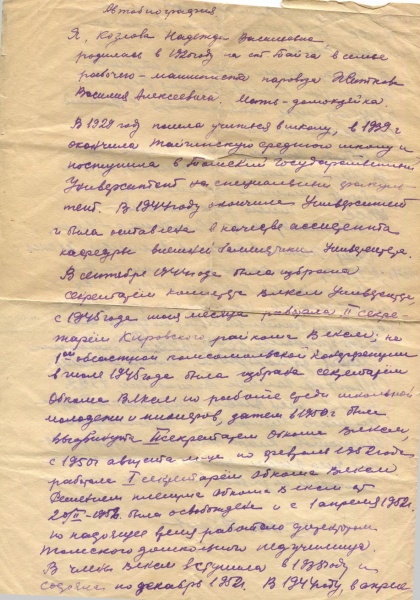 Автобиография.
Я, Козлова Надежда Васильевна,
родилась в 1920 году на ст. Тайга в семье
рабочего-машиниста паровоза
Василия Алексеевича. Мать-домохозяйка.
В 1929 году пошла учиться в школу, в 1939 г.
окончила Тайгинскую среднюю школу и
поступила в Томский Государственный
Университет на специальный факуль-
тет. В 1944 году окончила Университет
и была оставлена в качестве ассистента
кафедры Университета.
В сентябре 1944 года была избрана
секретарём комитета ВЛКСМ Университета
с 1945 года месяца работала II секре-
тарём Кировского райкома ВЛКСМ; на
1ой областной комсомольской конференции
в июле 1945 года была избрана секретарём
Обкома ВЛКСМ по работе среди школьной
молодежи и пионеров, затем в 1950 г. была
выдвинута II секретарем обкома ВЛКСМ,
с 1950 г августа м-ца по февраль 1952 года
работала I секретарём обкома ВЛКСМ
Решением пленума обкома ВЛКСМ от
1952 была освобождена и с 1 апреля 1952 г.
по настоящее время работаю директором
Томского дошкольного педучилища.
В члены ВЛКСМ вступила в году и
по декабрь 1952 г. В 1944 году, в апреле